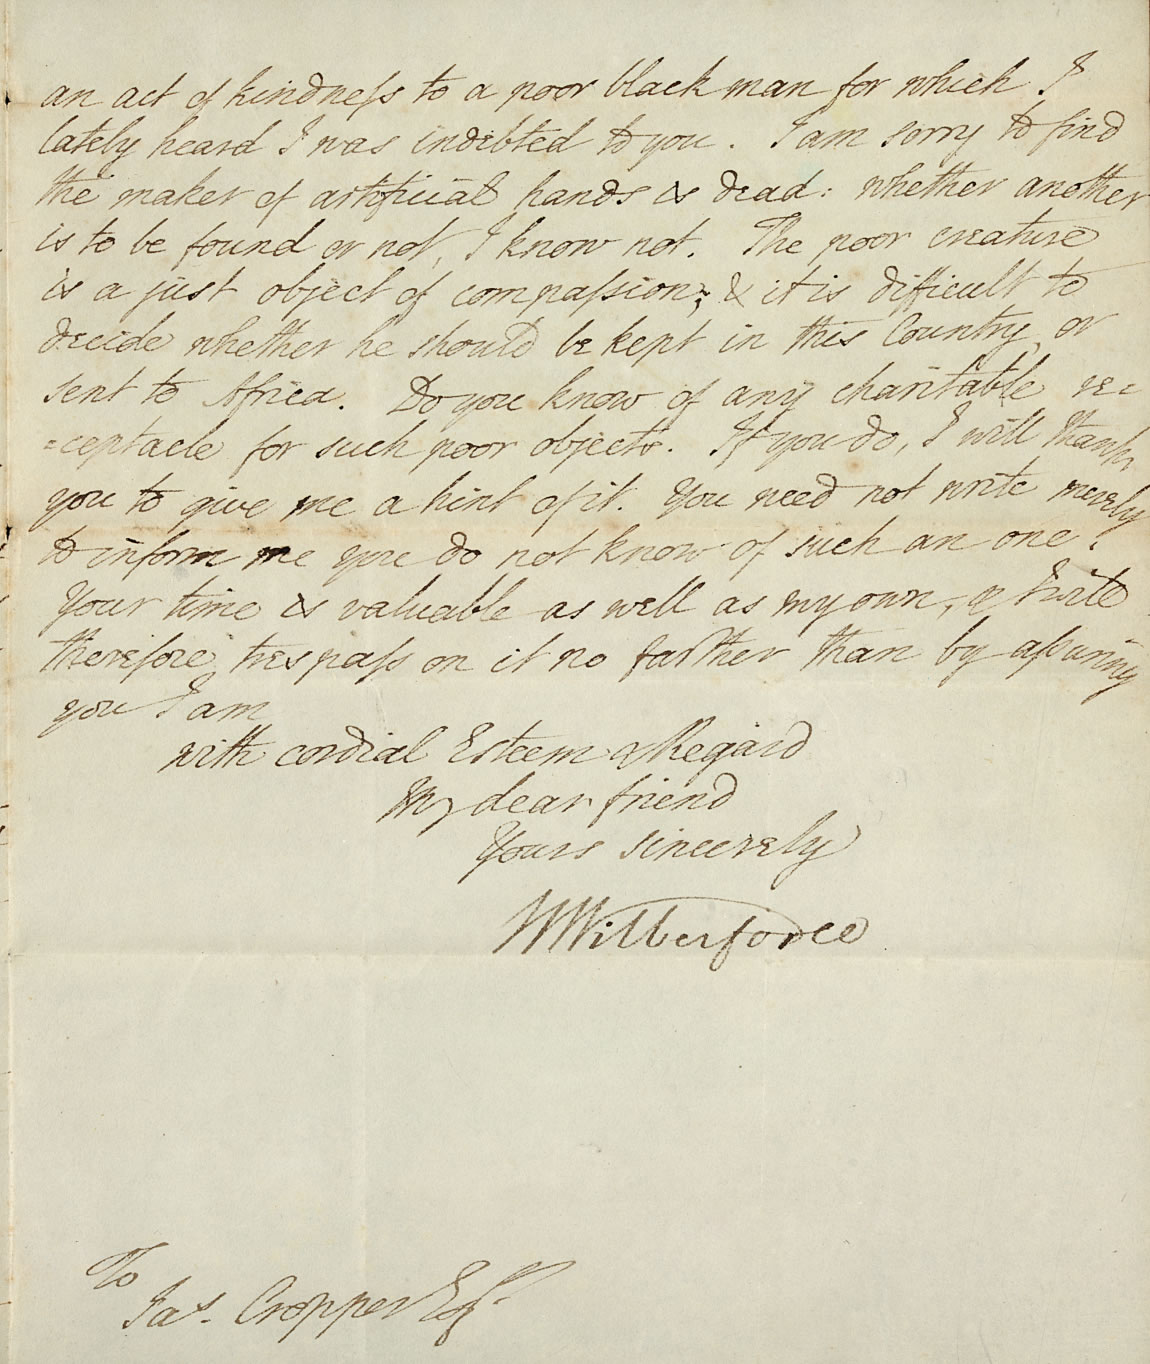 an act of kindneſs to a poor black man for which I
lately heard I was indebted to you. I am sorry to find
the maker of artificial hands is dead: whether another
is to be found or not, I know not. The poor creature
is a just object of compaſsion; & it is difficult to
decide whether he should be kept in this Country, or
sent to Africa. Do you know of any charitable re=
=ceptacle for such poor objects. If you do, I will thank
you to give me a hint of it. You need not write merely
to inform me you do not know of such an one.
Your time is valuable as well as my own, &
therefore trespaſs on it no farther than by aſsuring
you I am
with cordial Esteem & Regard
My dear friend
Yours sincerely
W Wilberforce
To
Jas. Cropper Esqr.